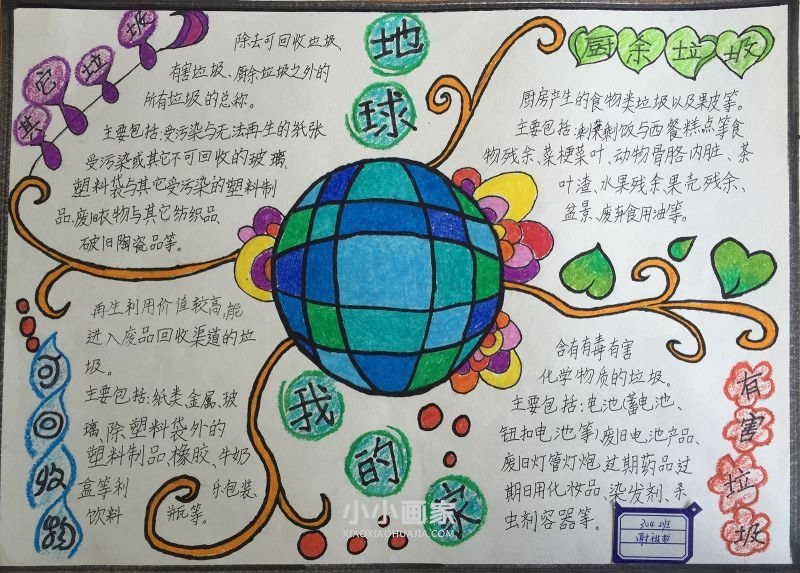 其它垃圾
除去可回收垃圾
有害垃圾、厨余垃圾之外的
所有垃圾的总称。
主要包括:受污染与无法再生的纸张
受污染或其它不可回收的玻璃
塑料袋与其它受污染的塑料制
品、废旧衣物与其它纺织品、
破旧陶瓷品等。
地球
我的家
厨余垃圾
厨房产生的食物类垃圾以及果皮等。
主要包括:剩菜剩饭与西餐糕点等食
物残余、菜梗菜叶、动物骨骼内脏、茶
叶渣、水果残余、果壳残余、
盆景、废弃食用油等。
可回收物
再生利用价值较高,能
进入废品回收渠道的垃
圾。
主要包括:纸类金属、玻
璃、除塑料袋外的
塑料制品、橡胶、牛奶
盒等利 乐包装、
饮料 瓶等。
有害垃圾
含有有毒有害
化学物质的垃圾。
主要包括:电池(蓄电池、
钮扣电池等)废旧电池产品、
废旧灯管灯炮、过期药品、过
期日用化妆品、染发剂、杀
虫剂容器等。
304班
小小画家
XIAOXIAOHUAJIA.COM